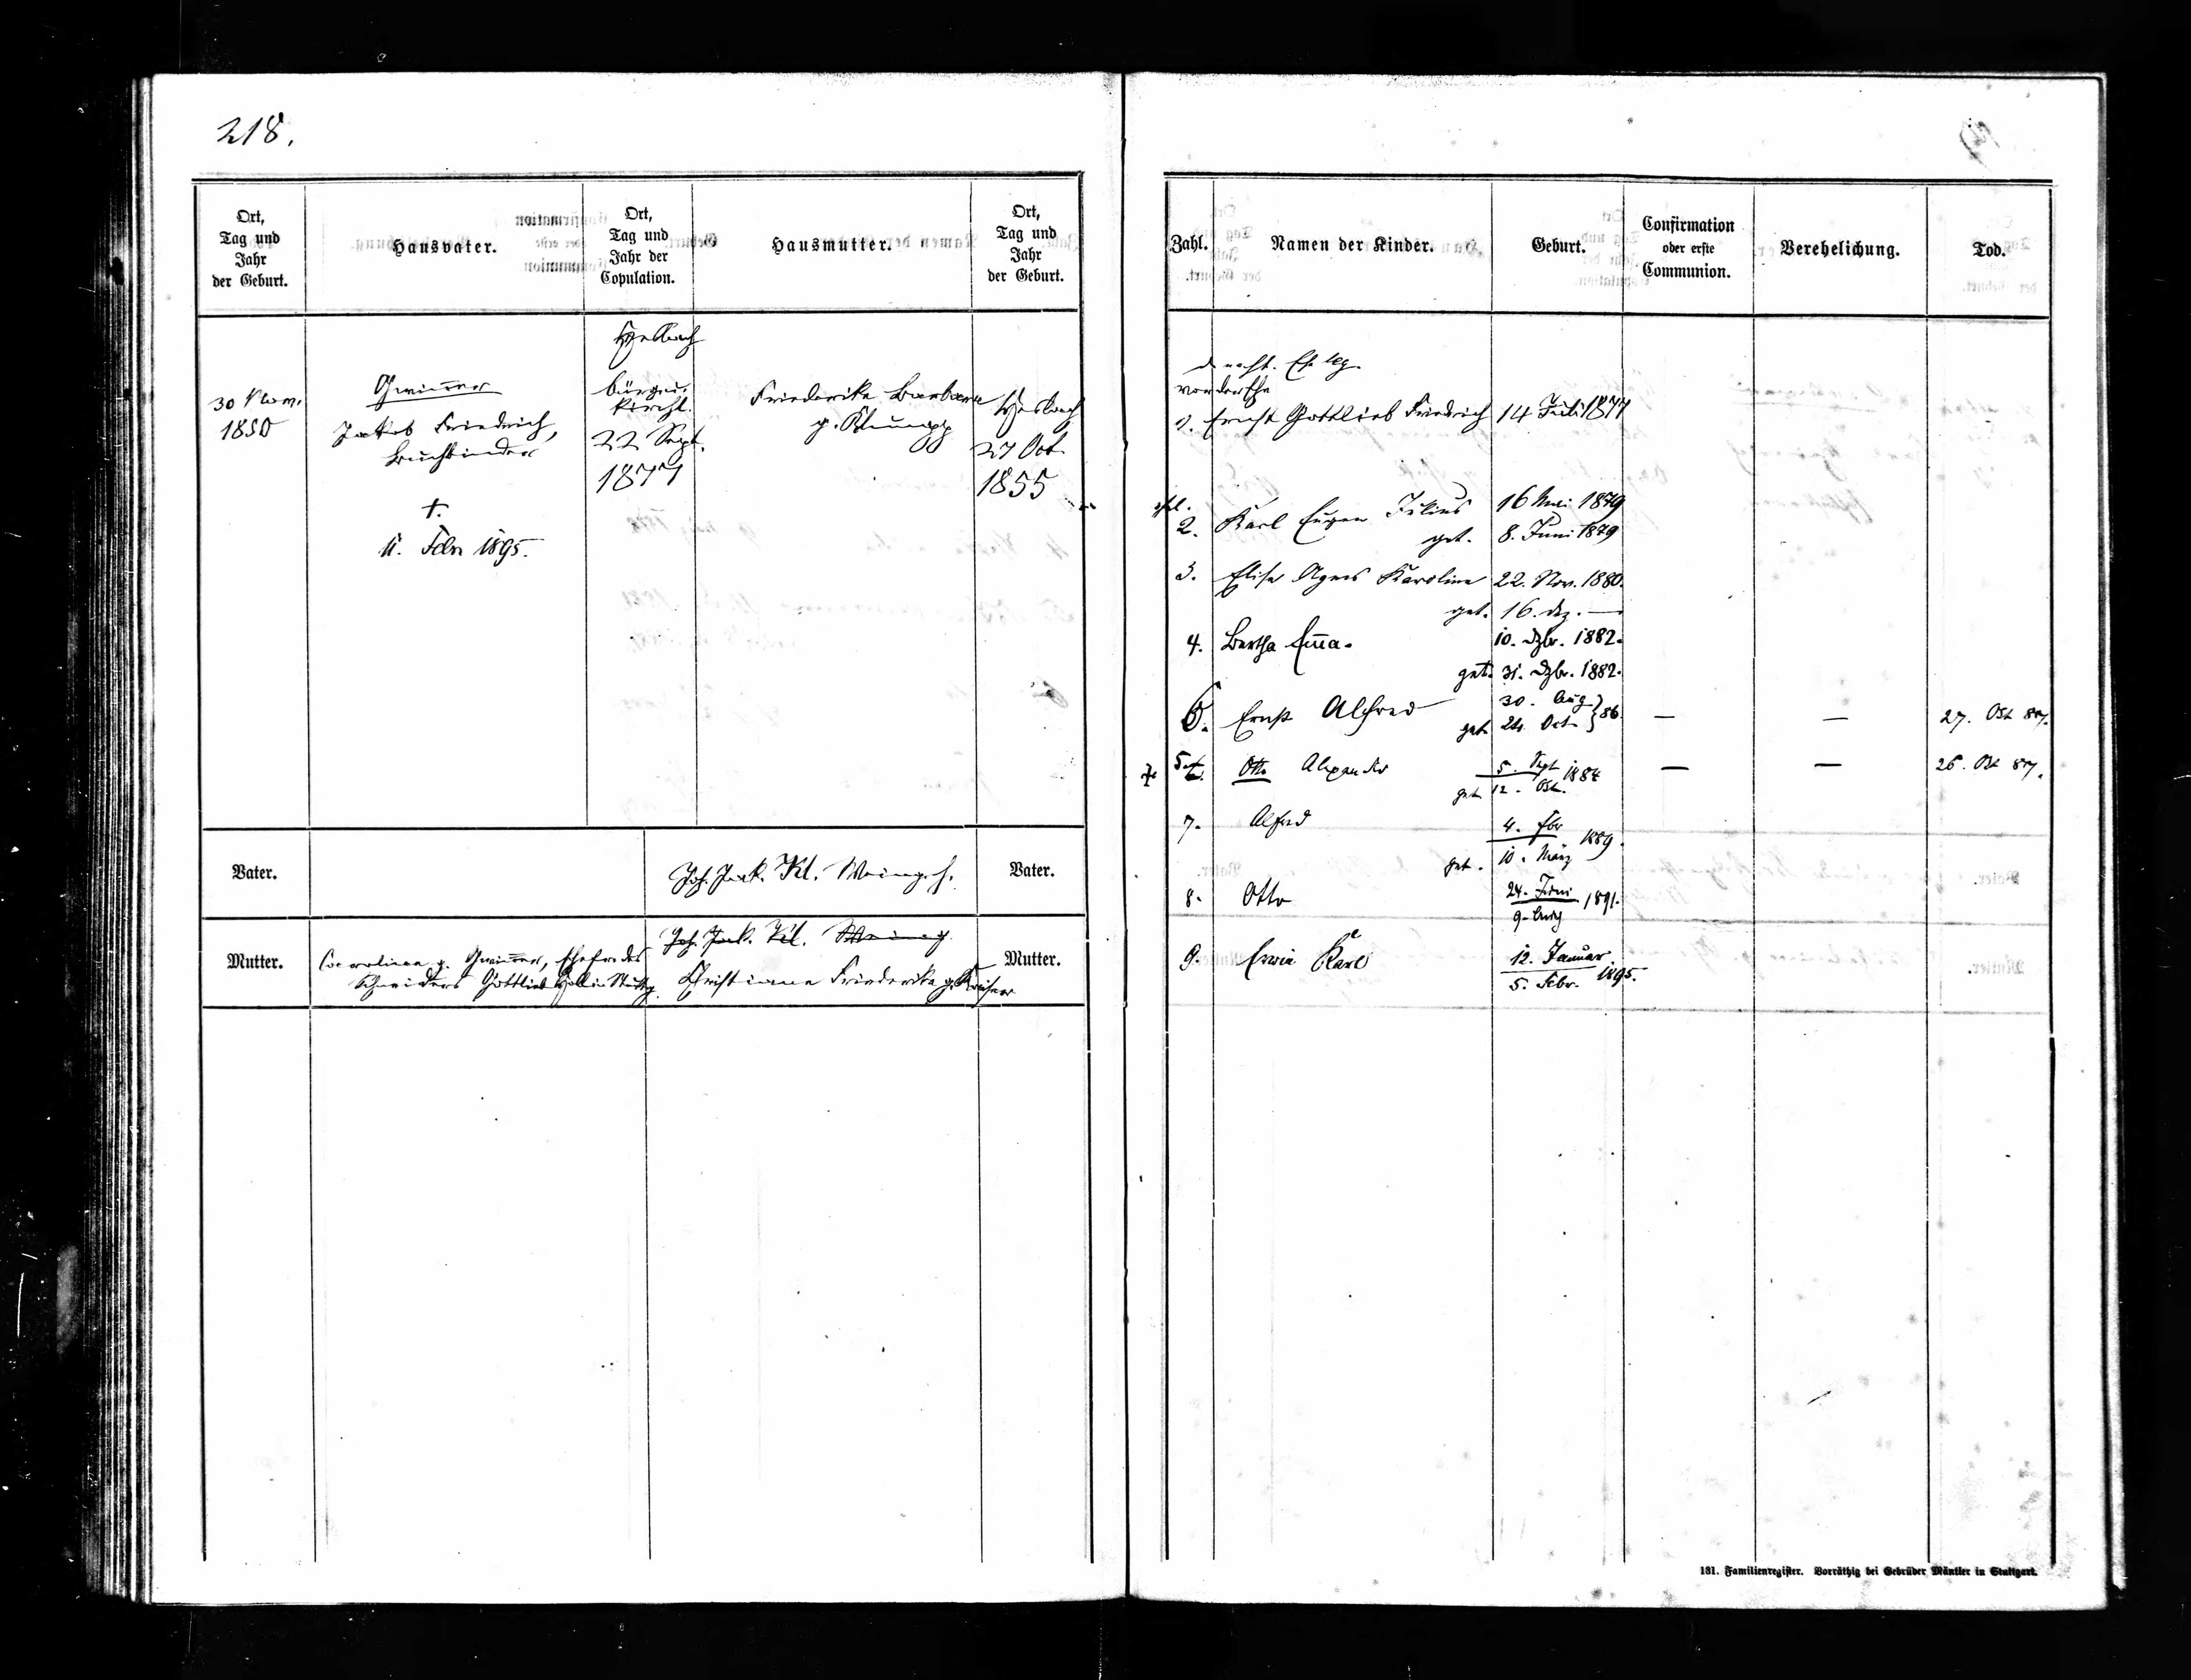 218.
Ort,
Tag und
Jahr
der Geburt.
Hausvater.
Ort,
Tag und
Jahr der
Copulation.
Hausmutter.
Ort,
Tag und
Jahr
der Geburt.
30 Nov.
1850
Gwinner
Jakob Friedrich,
Buchbinder
†.
11. Febr 1895.
Heslach
bürgerl.
kirchl.
22 Sept.
1877
Friederike Barbara
g. Klumpp
Heslach
27 Oct.
1855
Vater.
Joh. Jak. Kl. Weing. h.
Vater.
Mutter.
Carolina g. Gwinner, Ehefr. des
Schneiders Gottlieb in Stuttg.
Joh. Jak. Kl. Weing
Christiane Friederike g.
Mutter.
Zahl.
Namen der Kinder.
Geburt.
Confirmation
oder erste
Communion.
Verehelichung.
Tod.
leg.
1. Ernst Gottlieb Friedrich 14 Juli 1877
ehl.
2. Karl Eugen Julius 16 Mai 1879
get. 8. Juni 1879
3. Elise Agnes Karoline 22. Nov. 1880.
get. 16. Dez. —
4. Bertha Emma. 10. Dzbr. 1882.
get. 31. Dzbr. 1882.
6. Ernst Alfred 30. Aug. } 86. — — 27. Okt 87.
get. 24. Oct.
5. Otto Alexander 5. Sept 1884 — — 26. Okt 87.
get 12. Okt.
7. Alfred 4. Fbr 1889.
get. 10. März
8. Otto 24. Juni 1891.
9. Aug
9. Erwin Karl 12. Januar. 1895.
5. Febr.
181. Familienregister. Vorräthig bei Gebrüder Mäntler in Stuttgart.